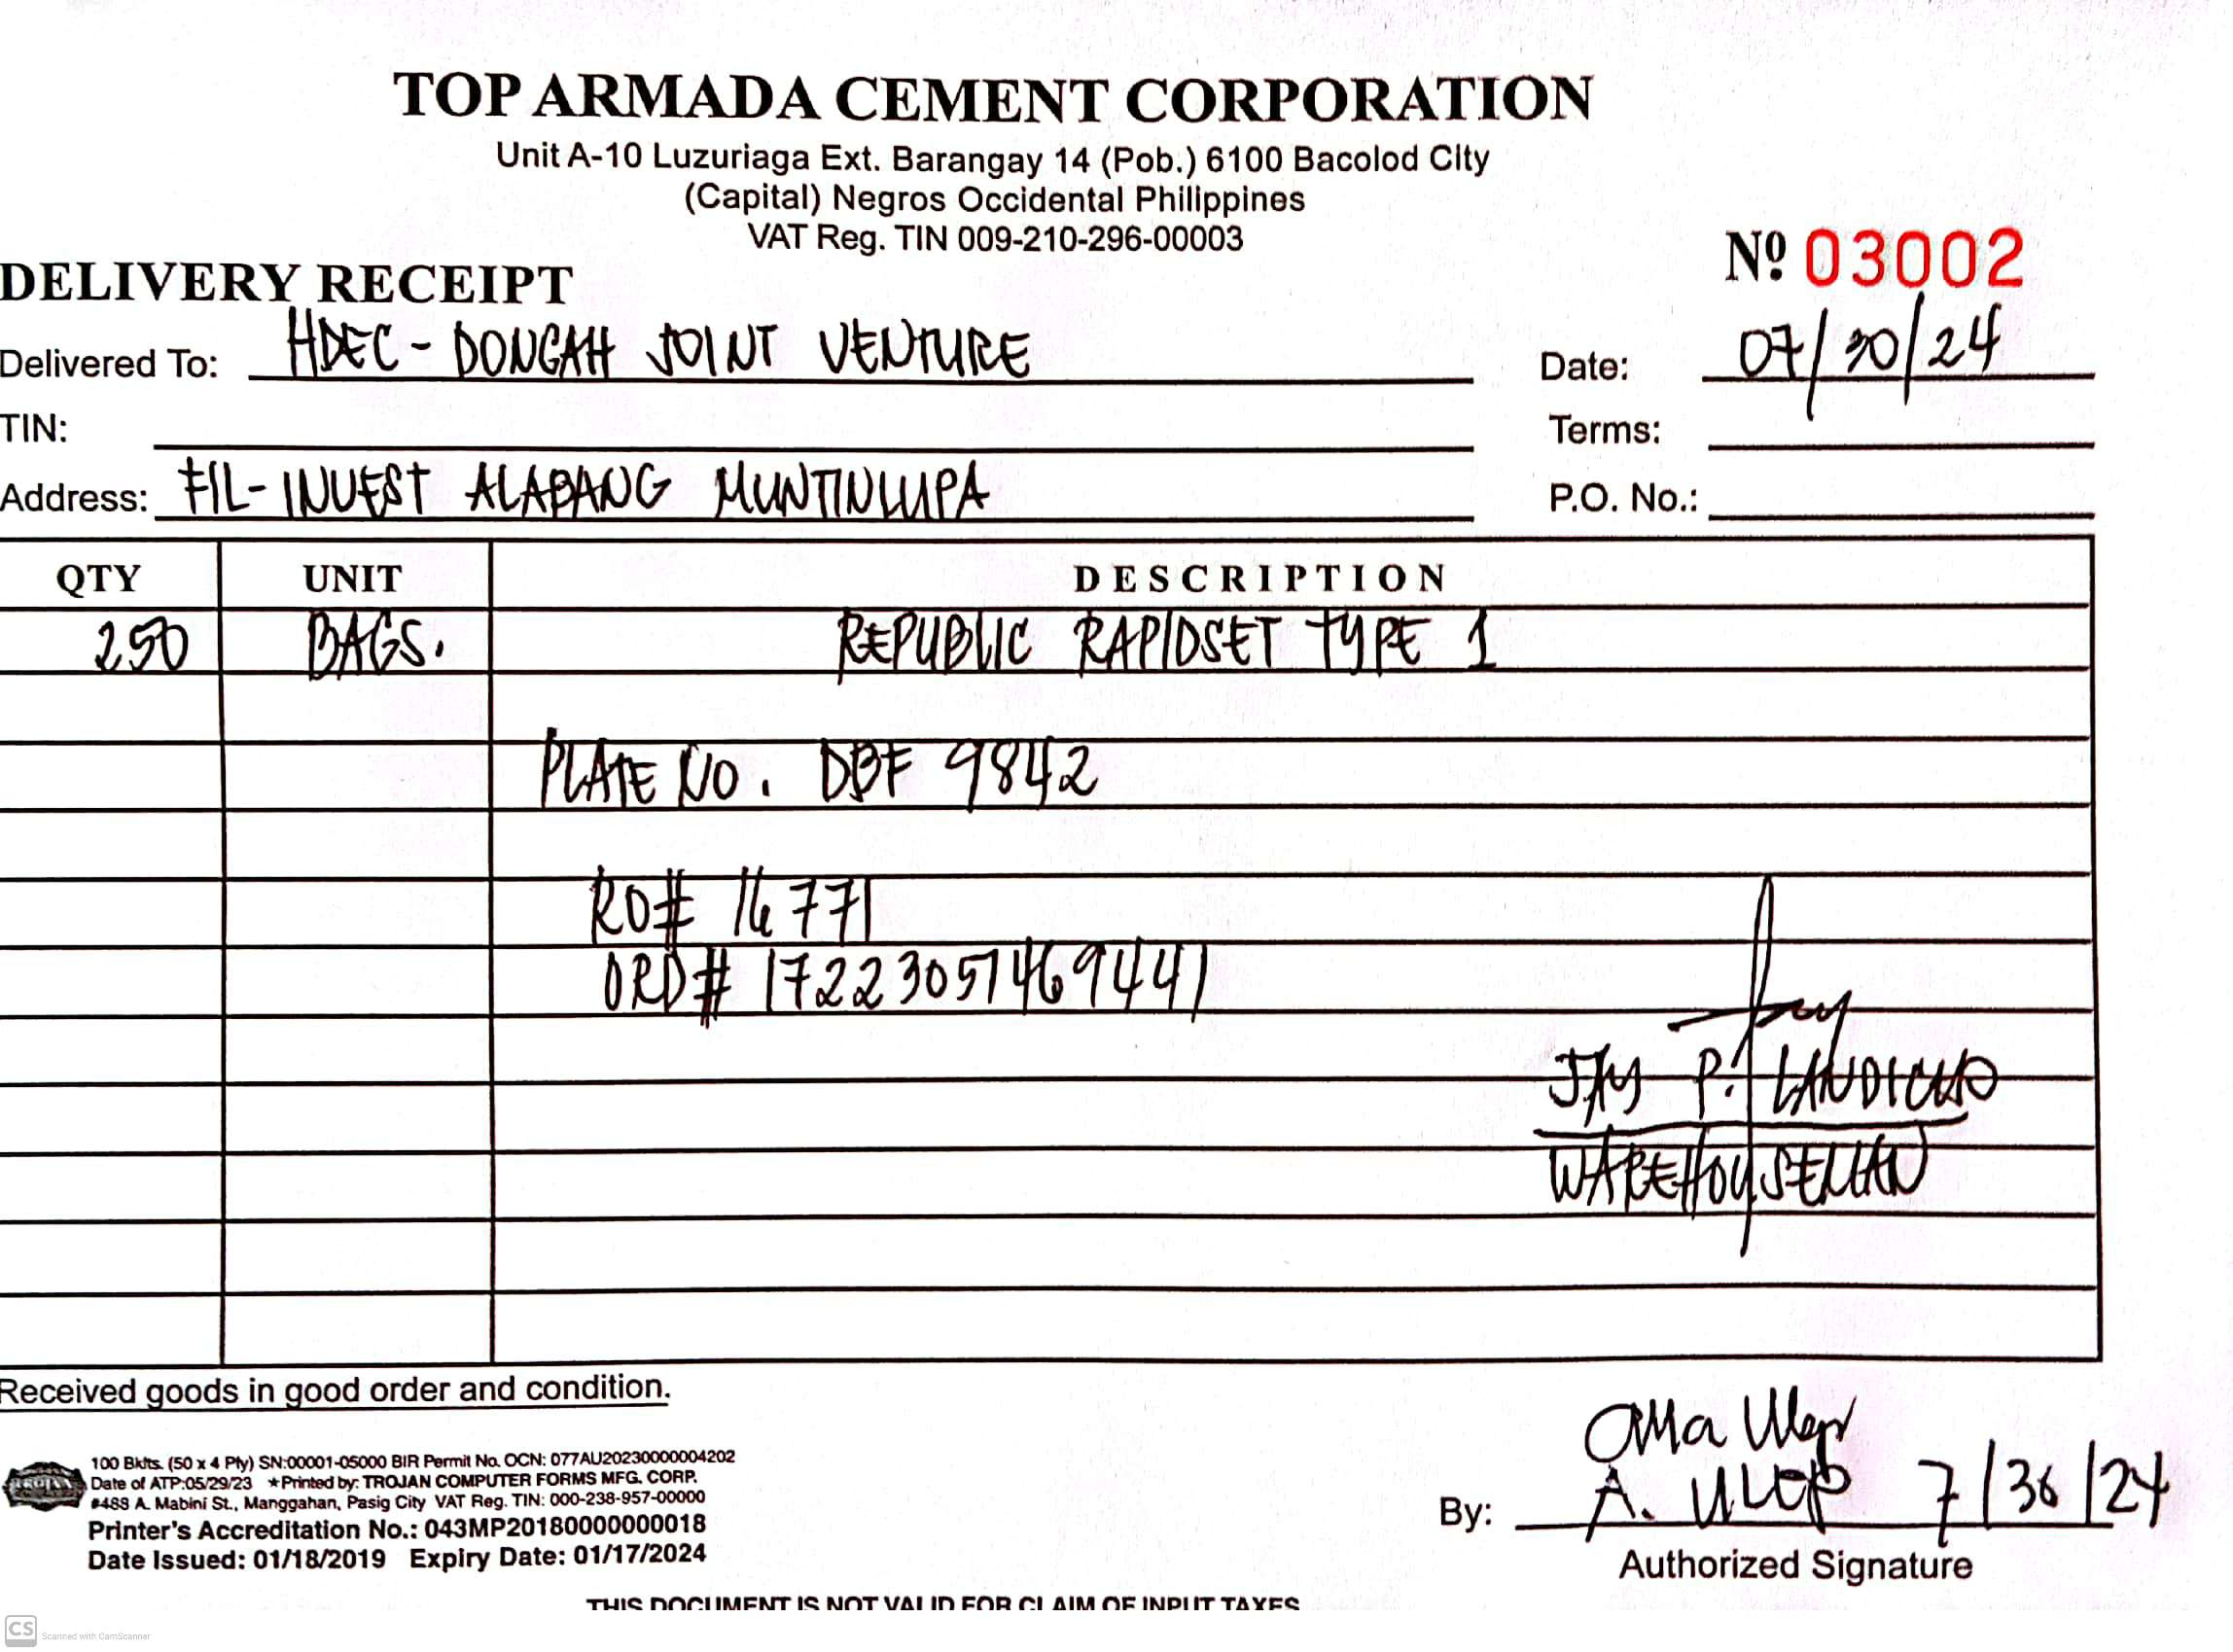 TOP ARMADA CEMENT CORPORATION
Unit A-10 Luzuriaga Ext. Barangay 14 (Pob.) 6100 Bacolod City
(Capital) Negros Occidental Philippines
VAT Reg. TIN 009-210-296-00003
Nº 03002
DELIVERY RECEIPT
Delivered To: HDEC - DONGAH JOINT VENTURE Date: 07/30/24
TIN: Terms:
Address: FIL-INVEST ALABANG MUNTINLUPA P.O. No.:
QTY UNIT DESCRIPTION
250 BAGS. REPUBLIC RAPIDSET TYPE 1
PLATE NO. DBF 9842
RO# 16771
ORD# 17223057469441
JAY P. LANDICHO
WAREHOUSEMAN
Received goods in good order and condition.
100 Bklts. (50 x 4 Ply) SN:00001-05000 BIR Permit No. OCN: 077AU20230000004202
Date of ATP:05/29/23 ★Printed by: TROJAN COMPUTER FORMS MFG. CORP.
#488 A. Mabini St., Manggahan, Pasig City VAT Reg. TIN: 000-238-957-00000
Printer's Accreditation No.: 043MP20180000000018
Date Issued: 01/18/2019 Expiry Date: 01/17/2024
By: A. ULEP 7/30/24
Authorized Signature
THIS DOCUMENT IS NOT VALID FOR CLAIM OF INPUT TAXES
CS Scanned with CamScanner